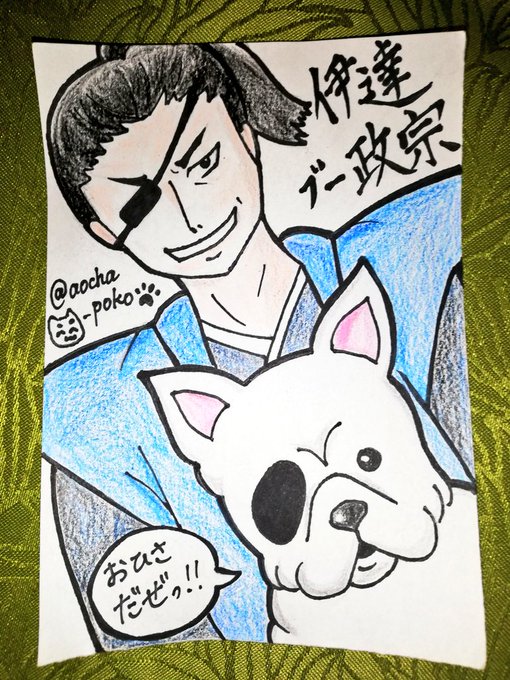 伊達
ブー政宗
@aocha
-poko
おひさ
だぜッ!!